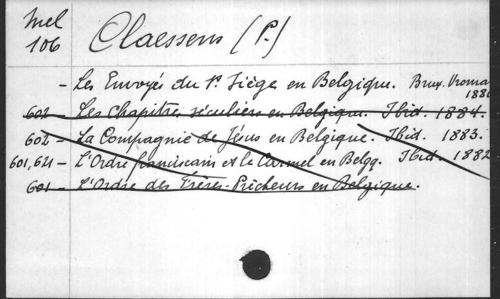 Mel
106
Claessens (P.)
- Les Envoyés du St Siège en Belgique. Brux. Vroma
188
602 - Les Chapitres séculiers en Belgique. Ibid. 1884.
602 - La Compagnie de Jésus en Belgique. Ibid. 1883.
601,621 - L'Ordre franciscain et le Carmel en Belgq. Ibid. 1882
601 - L'Ordre des Frères-Prêcheurs en Belgique.